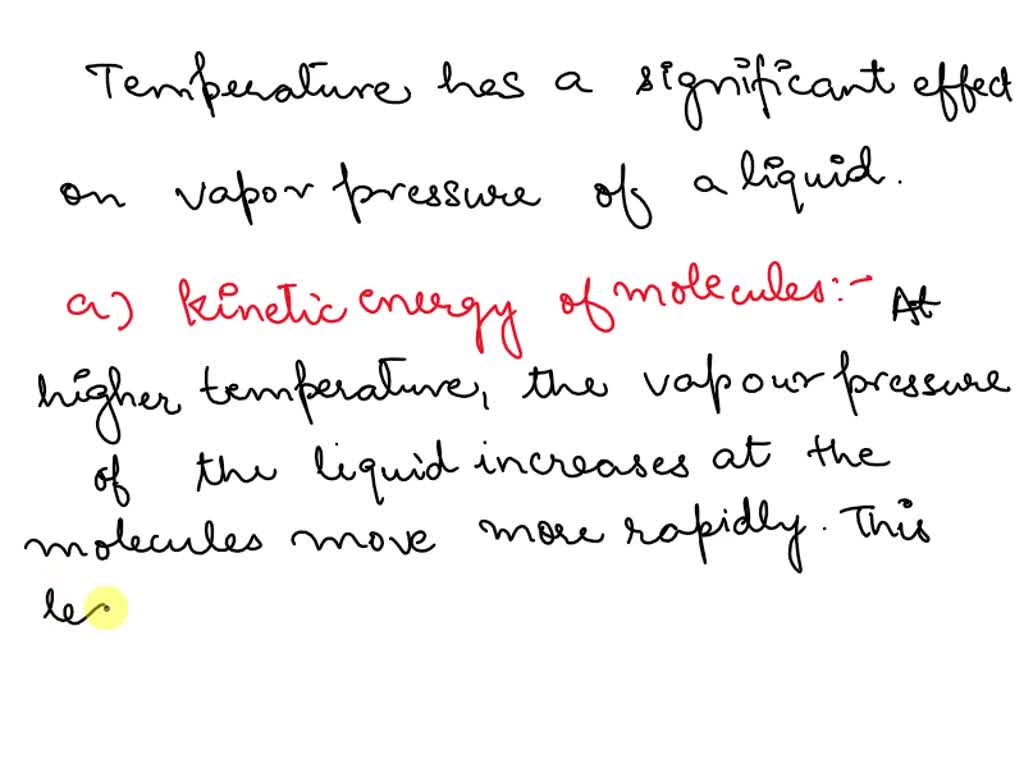 Temperature has a significant effect
on vapor pressure of a liquid.
a) Kinetic energy of molecules:- At
higher temperature, the vapour pressure
of the liquid increases at the
molecules move more rapidly. This
le